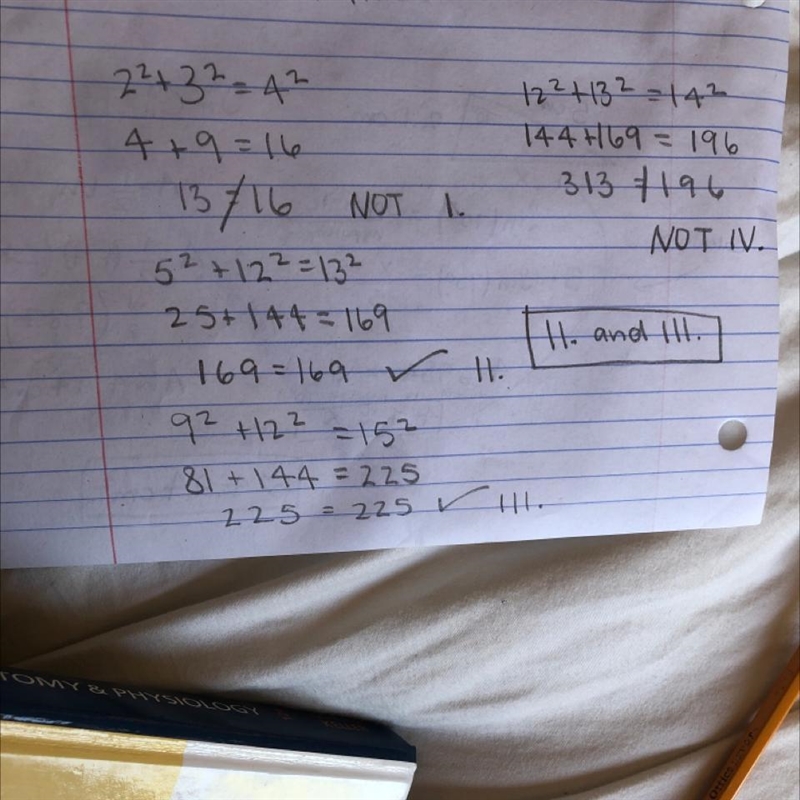 2²+3²=4²
4+9=16
13≠16 NOT I.
5²+12²=13²
25+144=169
169=169 ✓ II.
9²+12²=15²
81+144=225
225=225 ✓ III.
12²+13²=14²
144+169=196
313≠196
NOT IV.
II. and III.
TOMY & PHYSIOLOGY